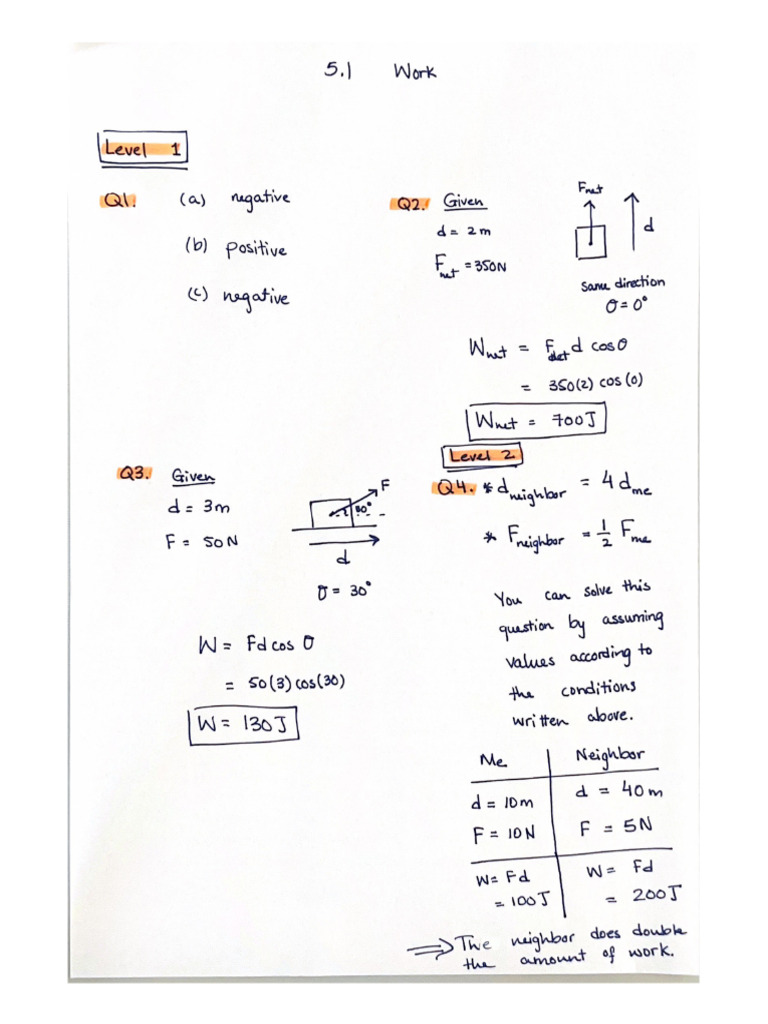 5.1 Work
Level 1
Q1. (a) negative
(b) positive
(c) negative
Q2. Given
d = 2m
Fnet = 350N
Fnet
d
same direction
θ = 0°
Wnet = Fnet d cosθ
= 350(2) cos(0)
Wnet = 700J
Q3. Given
d = 3m
F = 50N
F
30°
d
θ = 30°
W = Fd cos θ
= 50(3) cos(30)
W = 130J
Level 2
Q4. * dneighbor = 4 dme
* Fneighbor = 1/2 Fme
You can solve this
question by assuming
values according to
the conditions
written above.
Me Neighbor
d = 10m d = 40m
F = 10N F = 5N
W = Fd W = Fd
= 100J = 200J
⇒ The neighbor does double
the amount of work.